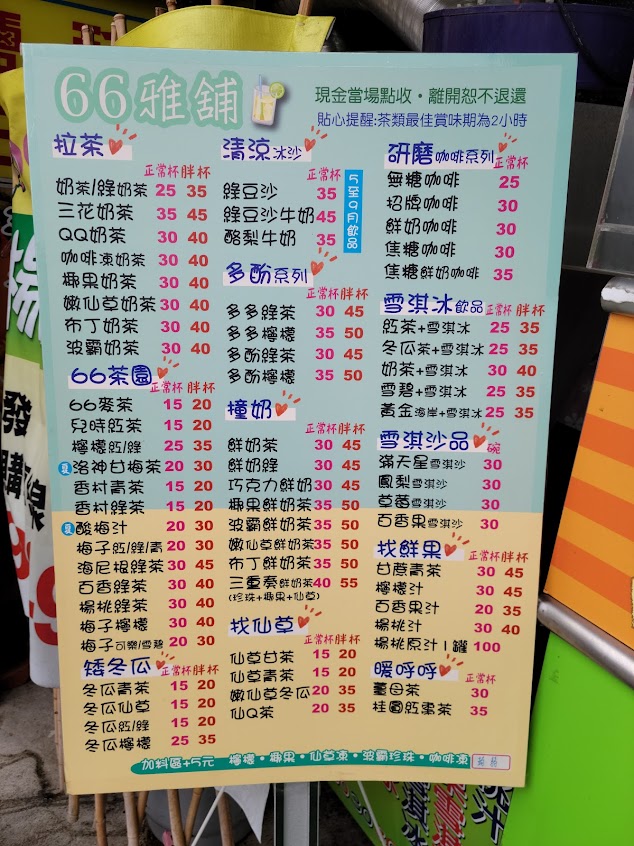 66雅舖
現金當場點收・離開恕不退還
貼心提醒:茶類最佳賞味期為2小時
拉茶
正常杯 胖杯
奶茶/綠奶茶 25 35
三花奶茶 35 45
QQ奶茶 30 40
咖啡凍奶茶 30 40
椰果奶茶 30 40
嫩仙草奶茶 30 40
布丁奶茶 30 40
波霸奶茶 30 40
66茶園
正常杯 胖杯
66麥茶 15 20
兒時紅茶 15 20
檸檬紅/綠 25 35
夏 洛神甘梅茶 20 30
香村青茶 15 20
香村綠茶 15 20
夏 酸梅汁 20 30
梅子紅/綠/青 20 30
海尼根綠茶 30 45
百香綠茶 30 40
楊桃綠茶 30 40
梅子檸檬 30 40
梅子可樂/雪碧 20 30
矮冬瓜
正常杯 胖杯
冬瓜青茶 15 20
冬瓜仙草 15 20
冬瓜紅/綠 15 20
冬瓜檸檬 25 35
清涼冰沙
正常杯 胖杯
綠豆沙 35
綠豆沙牛奶 45
酪梨牛奶 35
5至9月飲品
多酚系列
正常杯 胖杯
多多綠茶 30 45
多多檸檬 35 50
多酚綠茶 30 45
多酚檸檬 35 50
撞奶
正常杯 胖杯
鮮奶茶 30 45
鮮奶綠 30 45
巧克力鮮奶 30 45
椰果鮮奶茶 35 50
波霸鮮奶茶 35 50
嫩仙草鮮奶茶 35 50
布丁鮮奶茶 35 50
三重奏鮮奶茶 40 55
(珍珠+椰果+仙草)
找仙草
正常杯 胖杯
仙草甘茶 15 20
仙草青茶 15 20
嫩仙草冬瓜 20 35
仙Q茶 20 35
研磨咖啡系列
正常杯
無糖咖啡 25
招牌咖啡 30
鮮奶咖啡 30
焦糖咖啡 30
焦糖鮮奶咖啡 35
雪淇冰飲品
正常杯 胖杯
紅茶+雪淇冰 25 35
冬瓜茶+雪淇冰 25 35
奶茶+雪淇冰 30 40
雪碧+雪淇冰 25 35
黃金海岸+雪淇冰 25 35
雪淇沙品
碗
滿天星雪淇沙 30
鳳梨雪淇沙 30
草莓雪淇沙 30
百香果雪淇沙 30
找鮮果
正常杯 胖杯
甘蔗青茶 30 45
檸檬汁 30 45
百香果汁 20 35
楊桃汁 30 40
楊桃原汁1罐 100
暖呼呼
正常杯
薑母茶 30
桂圓紅棗茶 35
加料區+5元 檸檬・椰果・仙草凍・波霸珍珠・咖啡凍